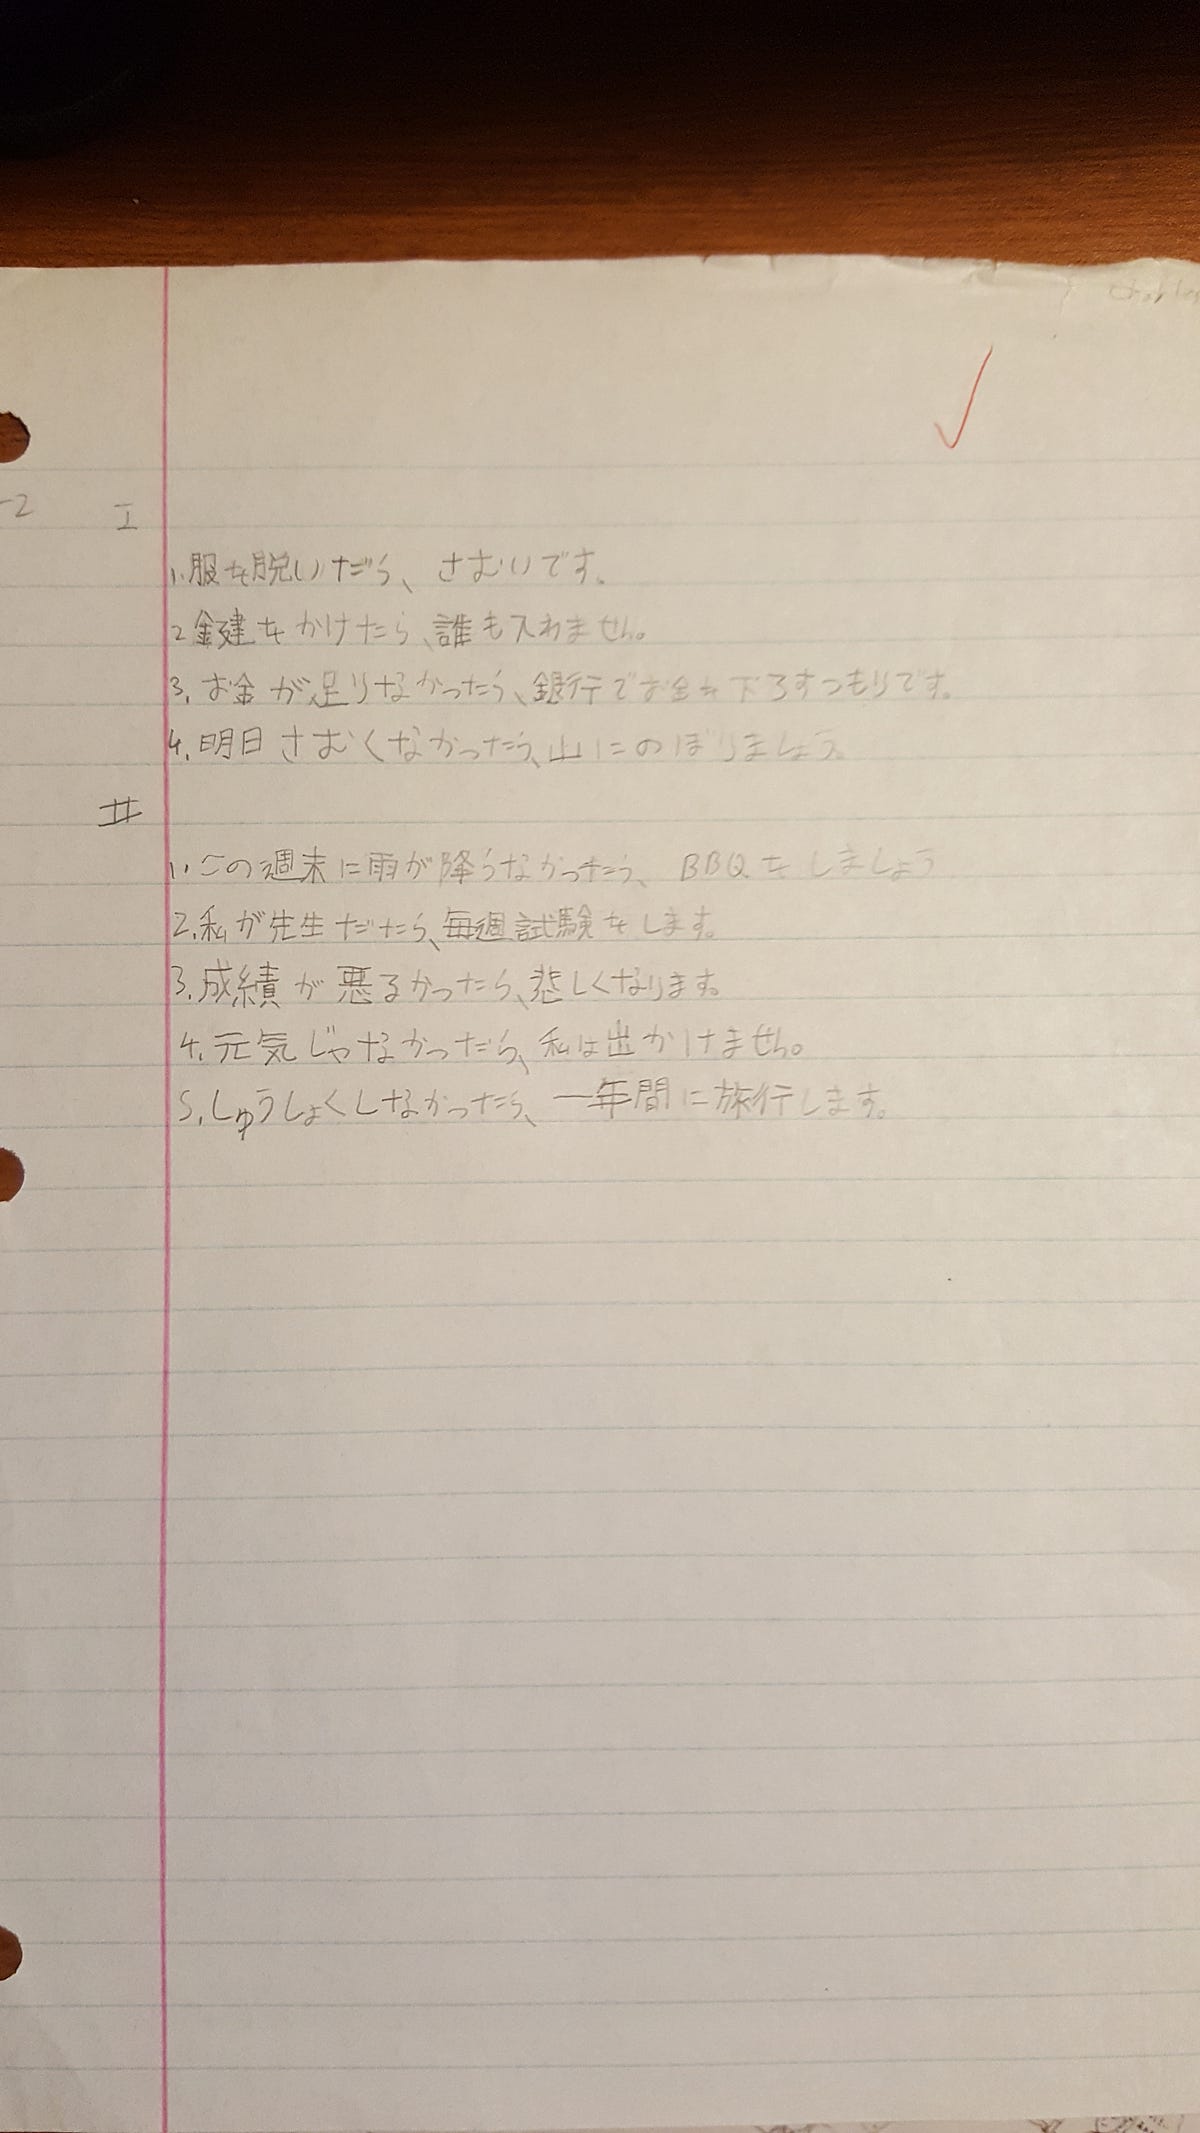 -2
I
1. 服を脱いだら、さむいです。
2 鍵をかけたら、誰も入れません。
3. お金が足りなかったら、銀行でお金を下ろすつもりです。
4. 明日さむくなかったら、山にのぼりましょう。
II
1. この週末に雨が降らなかったら、BBQをしましょう
2. 私が先生だたら、毎週試験をします。
3. 成績が悪るかったら、悲しくなります。
4. 元気じゃなかっだら、私は出かけません。
5. しゅうしょくしなかったら、一年間に旅行します。